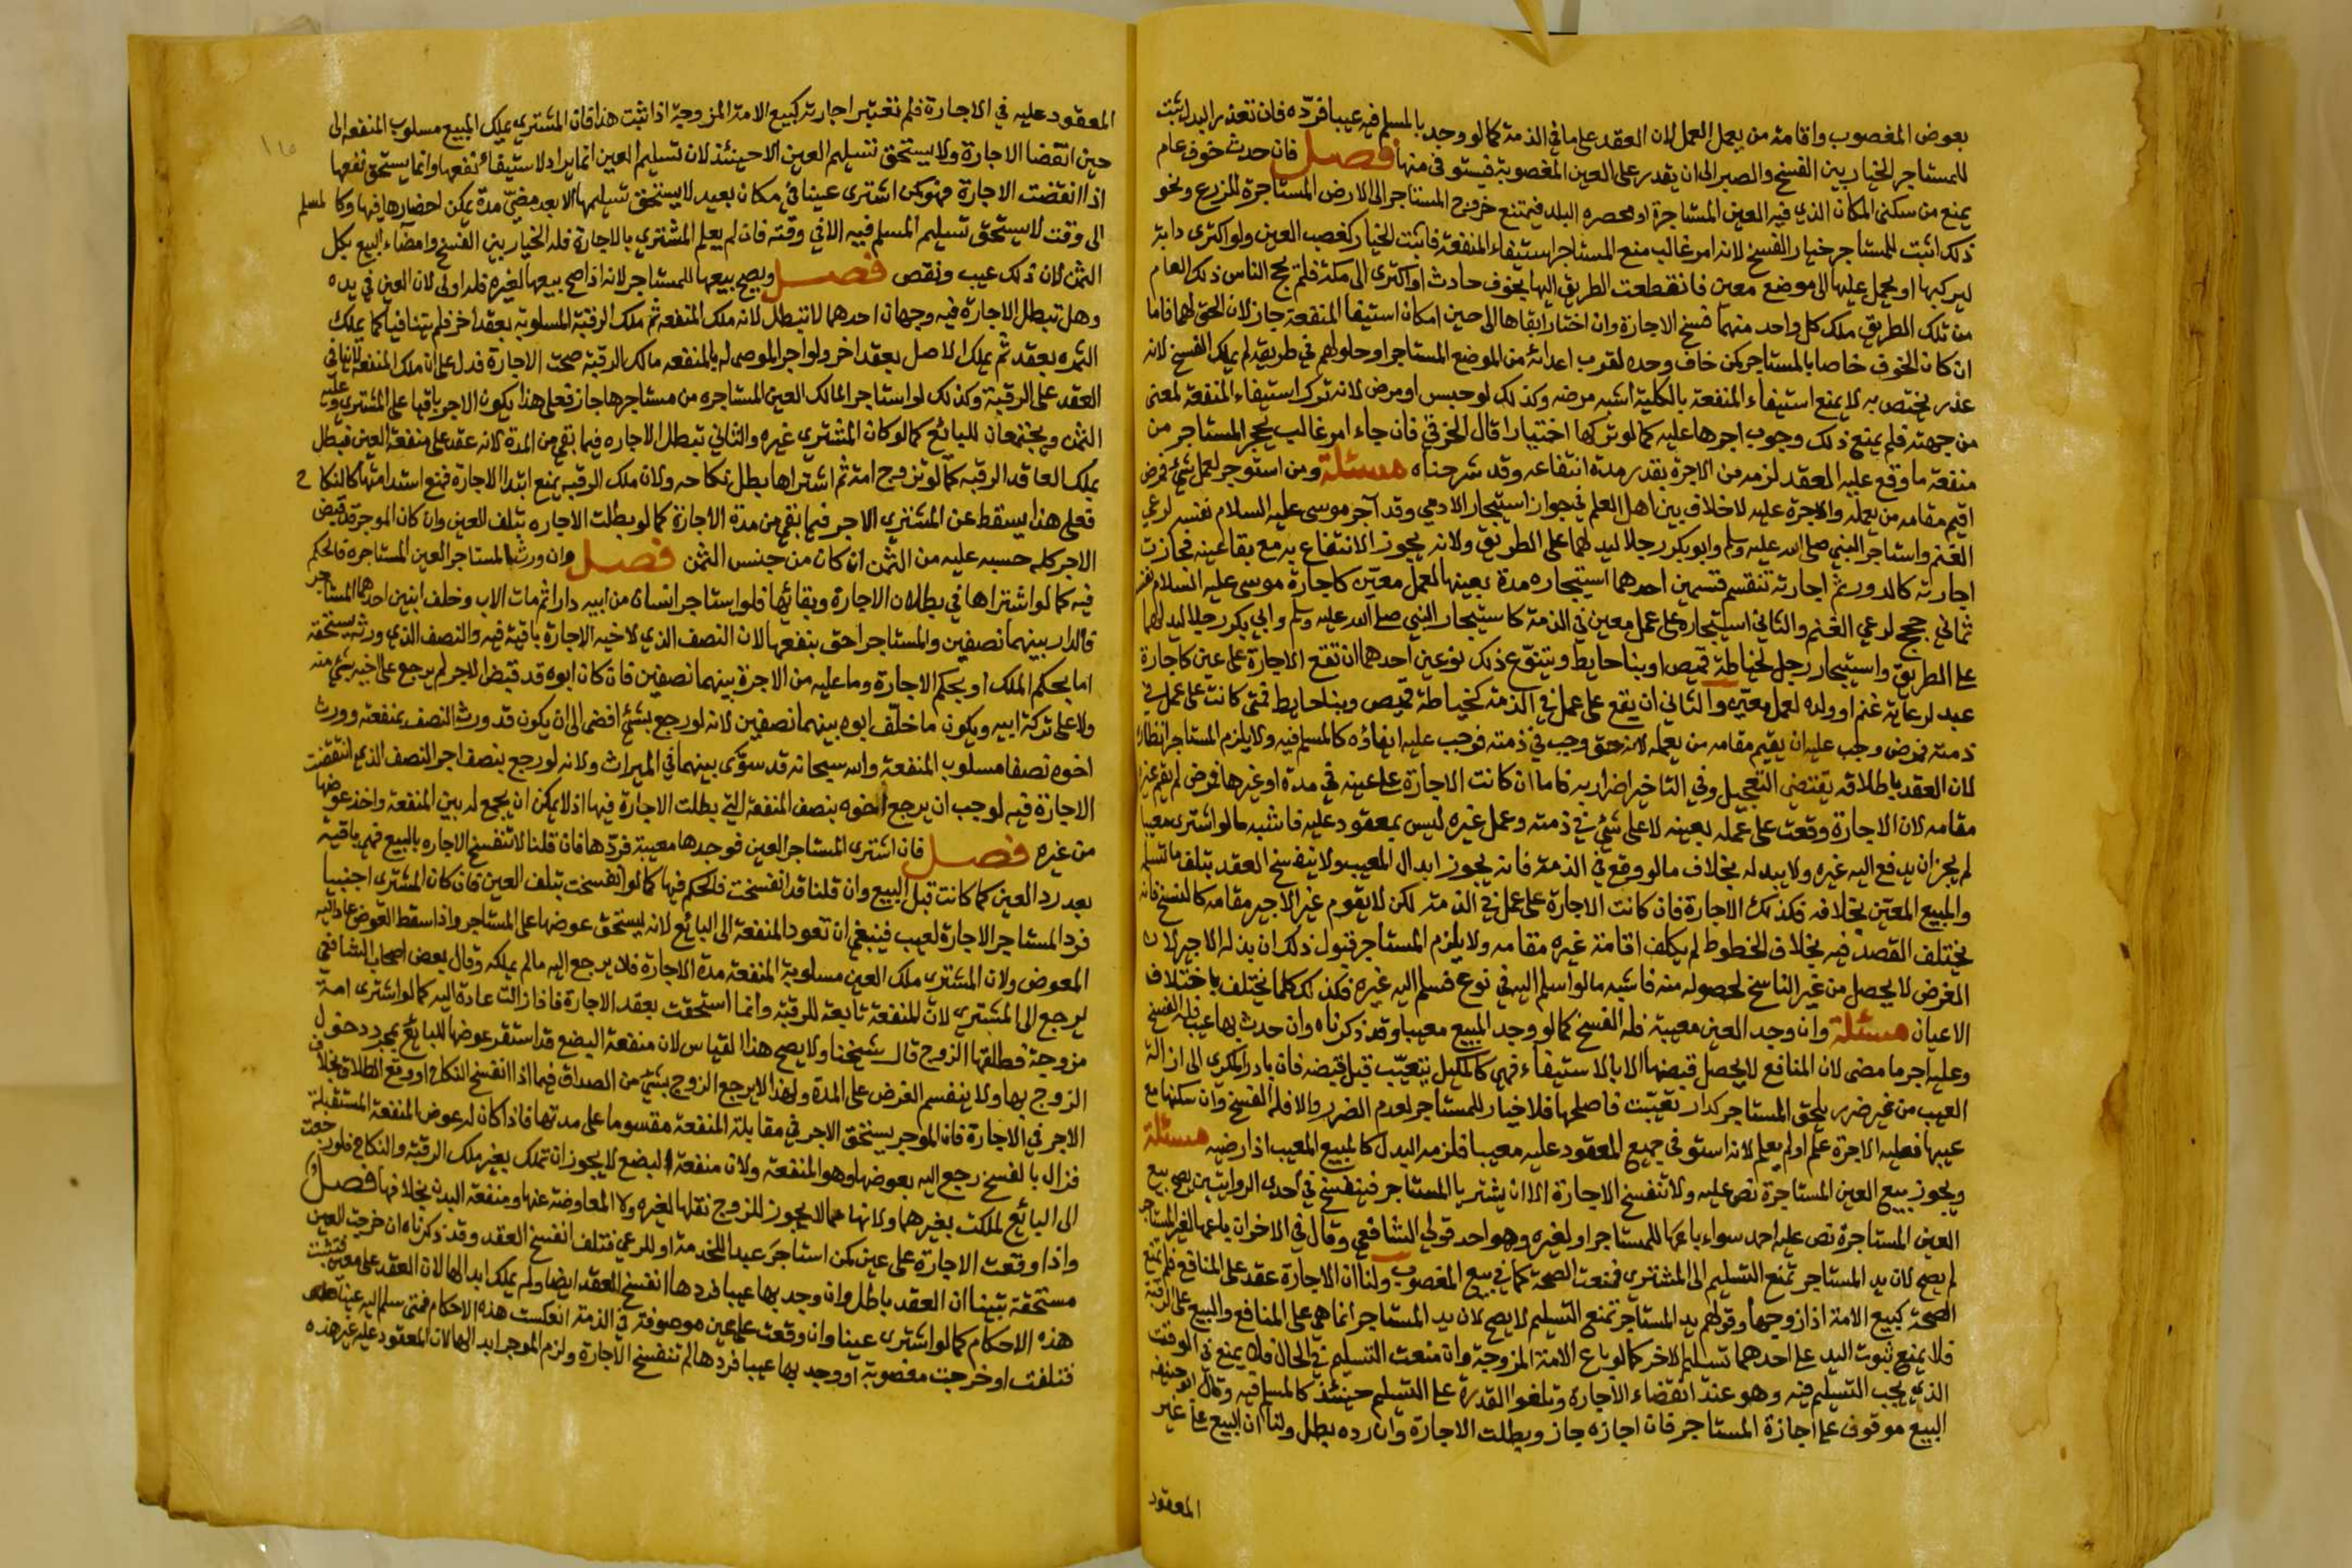 بعوض المغصوب واقامة من يعمل العمل لان العقد على ما في الذمة كما لو وجد بالمسلم فيه عيبا فردّه فان تعذر البدل ثبت
للمستاجر الخيار بين الفسخ والصبر الى ان يقدر على العين المغصوبة فيستوفي منها فصل فان حدث خوف عام
يمنع من سكنى المكان الذي فيه العين المستاجرة او تحصره البلد فيمتنع خروج المستاجر الى الارض المستاجرة للزرع ونحو
ذلك اثبت للمستاجر خيار الفسخ لانه امر غالب منع المستاجر استيفاء المنفعة فاثبت الخيار كغصب العين ولو اكترى دابة
ليركبها او يحمل عليها الى موضع معين فانقطعت الطريق اليها بخوف حادث او اكترى الى مكة فلم يحج الناس ذلك العام
من تلك الطريق ملك كل واحد منهما فسخ الاجارة وان اختار ابقاها الى حين امكان استيفا المنفعة جاز لان الحق لهما فاما
ان كان الخوف خاصا بالمستاجر كمن خاف وحده لقرب اعدائه من الموضع المستاجر او حلولهم في طريقه لم يملك الفسخ لانه
عذر يختص به لا يمنع استيفاء المنفعة بالكلية اشبه مرضه وكذلك لو حبس او مرض لانه ترك استيفاء المنفعة لمعنى
من جهته فلم يمنع ذلك وجوب اجرها عليه كما لو تركها اختيارا قال الخرقي فان جاء امر غالب يحجر المستاجر من
منفعة ما وقع عليه العقد لزمه من الاجرة بقدر مدة انتفاعه وقد شرحناه مسئلة ومن استوجر لعمل شئ فمرض
اقيم مقامه من يعمله والاجرة عليه لا خلاف بين اهل العلم في جواز استيجار الادمي وقد آجر موسى عليه السلام نفسه لرعي
الغنم واستاجر النبي صلى الله عليه وسلم وابو بكر رجلا ليدلهما على الطريق ولانه يجوز الانتفاع به مع بقا عينه فجازت
اجارته كالدور ثم اجارته تنقسم قسمين احدهما استيجاره مدة بعينها لعمل معيّن كاجارة موسى عليه السلام نفسه
ثماني حجج لرعي الغنم والثاني استيجاره على عمل معين في الذمة كاستيجار النبي صلى الله عليه وسلم وابي بكر رجلا ليدلهما
على الطريق واستيجار رجل لخياطة قميص او بنا حايط ويتنوّع ذلك نوعين احدهما ان تقع الاجارة على عين كاجارة
عبد لرعاية غنم او ولده لعمل معيّن والثاني ان يقع على عمل في الذمة كخياطة قميص وبنا حايط فمتى كانت على عمل في
ذمته فمرض وجب عليه ان يقيم مقامه من يعمله لانه حق وجب في ذمته فوجب عليه ايفاؤه كالمسلم فيه ولا يلزم المستاجر انظاره
لان العقد باطلاقه يقتضي التعجيل وفي التاخير اضرار به فاما ان كانت الاجارة على عينه في مدة او غيرها فمرض لم يقم غيره
مقامه لان الاجارة وقعت على عمله بعينه لا على شئ في ذمته وعمل غيره ليس بمعقود عليه فاشبه ما لو اشترى معينا
لم يجز ان يدفع اليه غيره ولا يبدله بخلاف ما لو وقع في الذمة فانه يجوز ابدال المعيب ولا ينفسخ العقد بتلف ما تسلمه
والمبيع المعيّن بخلافه فكذلك الاجارة فان كانت الاجارة على عمل في الذمة لكن لا يقوم غير الاجير مقامه كالنسخ فانه
يختلف القصد فيه بخلاف الخطوط لم يكلف اقامة غيره مقامه ولا يلزم المستاجر قبول ذلك ان بذله الاجير لان
الغرض لا يحصل من غير الناسخ لحصوله منه فاشبه ما لو اسلم اليه في نوع فسلم اليه غيره فكذلك كلما يختلف باختلاف
الاعيان مسئلة وان وجد العين معيبة فله الفسخ كما لو وجد المبيع معيبا وقد ذكرناه وان حدث بها عيب فله الفسخ
وعليه اجر ما مضى لان المنافع لا يحصل قبضها الا بالاستيفاء فهي كالمكيل يتعيّب قبل قبضه فان بادر المكري الى ازالة
العيب من غير ضرر يلحق المستاجر كدار تعيّبت فاصلحها فلا خيار للمستاجر لعدم الضرر والا فله الفسخ وان سكنها مع
عيبها فعليه الاجرة علم او لم يعلم لانه استوفى جميع المعقود عليه معيبا فلزمه البدل كالمبيع المعيب اذا رضيه مسئلة
ويجوز بيع العين المستاجرة نص عليه ولا تنفسخ الاجارة الا ان يشتريها المستاجر فينفسخ في احدى الروايتين يصح بيع
العين المستاجرة نص عليه احمد سواء باعها للمستاجر او لغيره وهو احد قولي الشافعي وقال في الاخر ان باعها لغير المستاجر
لم يصح لان يد المستاجر تمنع التسليم الى المشتري فمنعت الصحة كما في بيع المغصوب ولنا ان الاجارة عقد على المنافع فلم تمنع
الصحة كبيع الامة اذا زوجها وقولهم يد المستاجر تمنع التسليم لا يصح لان يد المستاجر انما هي على المنافع والبيع على الرقبة
فلا يمنع ثبوت اليد على احدهما تسليم الاخر كما لو باع الامة المزوجة وان منعت التسليم في الحال فلا يمنع في الوقت
الذي يجب التسليم فيه وهو عند انقضاء الاجارة وتلغوا القدرة على التسليم حينئذ كالمسلم فيه وقال ابو حنيفة
البيع موقوف على اجازة المستاجر فان اجازه جاز وبطلت الاجارة وان رده بطل ولنا ان البيع على غير
المعقود
المعقود عليه في الاجارة فلم تعتبر اجارته كبيع الامة المزوجة اذا ثبت هذا فان المشتري يملك المبيع مسلوب المنفعة الى
حين انقضا الاجارة ولا يستحق تسليم العين الا حينئذ لان تسليم العين انما يراد لاستيفاء نفعها وانما يستحق نفعها
اذا انقضت الاجارة فهو كمن اشترى عينا في مكان بعيد لا يستحق تسليمها الا بعد مضيّ مدة يمكن احضارها فيها وكالمسلم
الى وقت لا يستحق تسليم المسلم فيه الا في وقته فان لم يعلم المشتري بالاجارة فله الخيار بين الفسخ وامضاء البيع بكل
الثمن لان ذلك عيب ونقص فصل ويصح بيعها للمستاجر لانه اذا صح بيعها لغيره فله اولى لان العين في يده
وهل تبطل الاجارة فيه وجهان احدهما لا تبطل لانه ملك المنفعة ثم ملك الرقبة المسلوبة بعقد اخر فلم يتنافيا كما يملك
الثمرة بعقد ثم يملك الاصل بعقد اخر ولو اجر الموصى له بالمنفعة مالك الرقبة صحت الاجارة فدل على ان ملك المنفعة لا ينافي
العقد على الرقبة وكذلك لو استاجر المالك العين المستاجرة من مستاجرها جاز فعلى هذا يكون الاجر باقيا على المشتري وعليه
الثمن ويجتمعان للبائع كما لو كان المشتري غيره والثاني تبطل الاجاره فيما بقي من المدة لانه عقد على منفعة العين فبطل
بملك العاقد الرقبة كما لو تزوج امة ثم اشتراها بطل نكاحه ولان ملك الرقبة يمنع ابتدا الاجارة فمنع استدامتها كالنكاح
فعلى هذا يسقط عن المشتري الاجر فيما بقي من مدة الاجارة كما لو بطلت الاجاره بتلف العين وان كان الموجر قد قبض
الاجر كله حسبه عليه من الثمن ان كان من جنس الثمن فصل وان ورث المستاجر العين المستاجره فالحكم
فيه كما لو اشتراها في بطلان الاجارة وبقائها فلو استاجر انسان من ابيه دارا ثم مات الاب وخلف ابنين احدهما المستاجر
فالدار بينهما نصفين والمستاجر احق بنفعها لان النصف الذي لاخيه الاجارة باقية فيه والنصف الذي ورثه يستحقه
اما بحكم الملك او بحكم الاجارة وما عليه من الاجرة بينهما نصفين فان كان ابوه قد قبض الاجر لم يرجع على اخيه بشئ منه
ولا على تركة ابيه ويكون ما خلّف ابوه بينهما نصفين لانه لو رجع بشئ افضى الى ان يكون قد ورث النصف بمنفعته وورث
اخوه نصفا مسلوب المنفعة والله سبحانه قد سوّى بينهما في الميراث ولانه لو رجع بنصف اجر النصف الذي انتقضت
الاجارة فيه لوجب ان يرجع اخوه بنصف المنفعة التي بطلت الاجارة فيها اذ لا يمكن ان يجمع له بين المنفعة واخذ عوضها
من غيره فصل فان اشترى المستاجر العين فوجدها معيبة فردّها فان قلنا لا تنفسخ الاجاره بالبيع فهي باقية
بعد رد العين كما كانت قبل البيع وان قلنا قد انفسخت فالحكم فيها كما لو انفسخت بتلف العين فان كان المشتري اجنبيا
فرد المستاجر الاجارة لعيب فينبغي ان تعود المنفعة الى البائع لانه يستحق عوضها على المستاجر واذا سقط العوض عاد اليه
المعوض ولان المشتري ملك العين مسلوبة المنفعة مدة الاجارة فلا يرجع اليه ما لم يملكه وقال بعض اصحاب الشافعي
يرجع الى المشتري لان المنفعة تابعة للرقبة وانما استحقت بعقد الاجارة فاذا زالت عادة اليه كما لو اشترى امة
مزوجة فطلقها الزوج قال شيخنا ولا يصح هذا القياس لان منفعة البضع قد استقر عوضها للبائع بمجرد دخول
الزوج بها ولا ينقسم العوض على المدة ولهذا لا يرجع الزوج بشئ من الصداق فيما اذا انفسخ النكاح او وقع الطلاق بخلاف
الاجر في الاجارة فان الموجر يستحق الاجر في مقابلة المنفعة مقسوما على مدتها فاذا كان له عوض المنفعة المستقبلة
فزال بالفسخ رجع اليه بعوضها وهو المنفعة ولان منفعة البضع لا يجوز ان تملك بغير ملك الرقبة والنكاح فلو رجعت
الى البائع لملكت بغيرهما ولانها مما لا يجوز للزوج نقلها لغيره ولا المعاوضة عنها ومنفعة البدن بخلافها فصل
واذا وقعت الاجارة على عين كمن استاجر عبدا للخدمة او للرعي فتلف انفسخ العقد وقد ذكرناه ان خرجت العين
مستحقة تبينا ان العقد باطل وان وجد بها عيبا فردها انفسخ العقد ايضا ولم يملك ابدالها لان العقد على معين فثبتت
هذه الاحكام كما لو اشترى عينا وان وقعت على عين موصوفة في الذمة انعكست هذه الاحكام فمتى سلم اليه عينا
فتلفت او خرجت مغصوبة او وجد بها عيبا فردها لم تنفسخ الاجارة ولزم الموجر ابدالها لان المعقود عليه غير هذه